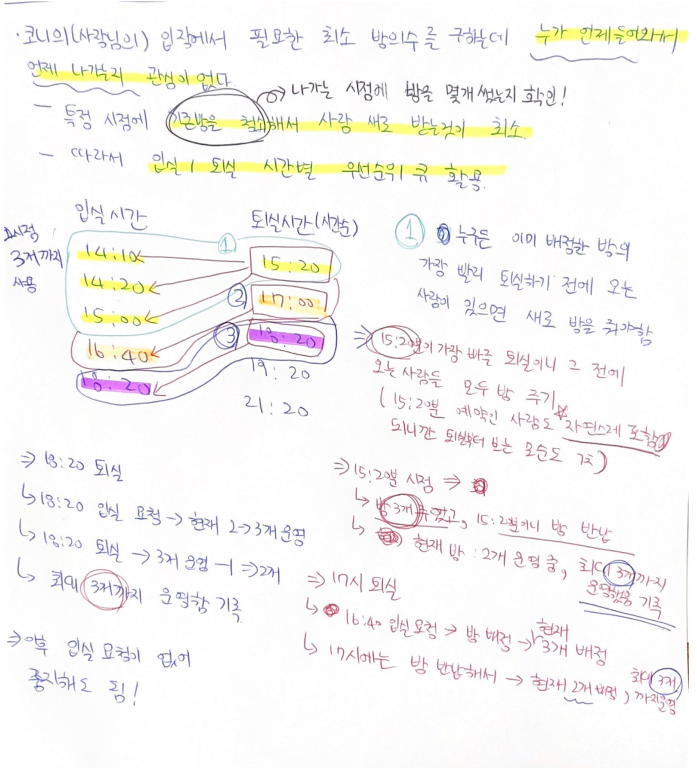 · 코니의(사장님의) 입장에서 필요한 최소 방의수를 구하는데 누가 언제들어와서
언제 나가는지 관심이 없다
→ 나가는 시점에 방을 몇개 썼는지 확인!
- 특정 시점에 기존방을 청소해서 사람 새로 받는것이 최소.
- 따라서 입실 / 퇴실 시간별 우선순위 큐 활용.
입실시간
퇴실시간(시간순)
3개까지
사용
14:10
14:20
15:00
16:40
18:20
①
②
③
15:20
17:00
18:20
19:20
21:20
① 누구든 이미 배정한 방의
가장 빨리 퇴실하기 전에 오는
사람이 있으면 새로 방을 줘야함
⇒ 15:20분이 가장 빠른 퇴실이니 그 전에
오는 사람들 모두 방 주기
(15:20분 예약인 사람도 자연스레 포함
되니깐 퇴실부터 보는 모순도 )
⇒ 15:20분 시점 ⇒
↳ 방 3개 주었고, 15:20분이니 방 반납
↳ 현재 방: 2개 운영 중, 최대 3개까지
운영했음 기록
⇒ 17시 퇴실
↳ 16:40 입실요청 → 방 배정 → 현재 3개 배정
↳ 17시에는 방 반납해서 → 현재 2개 배정, 최대 3개
까지운영
⇒ 18:20 퇴실
↳ 18:20 입실 요청 → 현재 2 → 3개 운영
↳ 18:20 퇴실 → 3개 운영 -1 ⇒ 2개
↳ 최대 3개까지 운영함 기록
⇒ 이후 입실 요청이 없어
중지해도 됨!